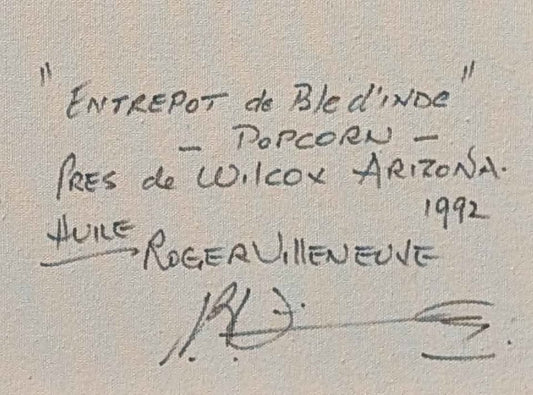 "ENTREPOT de Ble d'iNDE"
- POPCORN -
PRES de WilCOX ARIZONA.
1992
HUILE
ROGER VillENEUVE